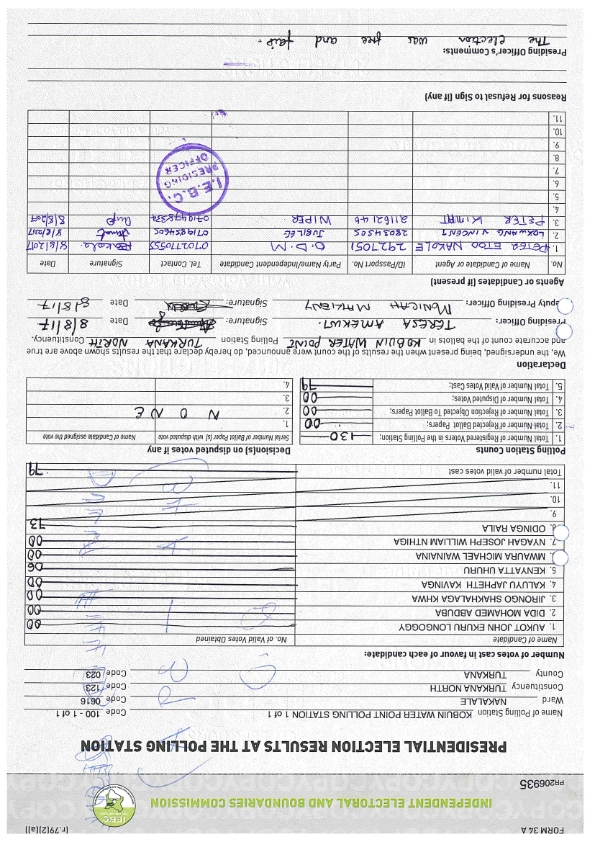 FORM 34 A
(r.79(2)(a))
INDEPENDENT ELECTORAL AND BOUNDARIES COMMISSION
PR206935
PRESIDENTIAL ELECTION RESULTS AT THE POLLING STATION
Name of Polling Station KOBUIN WATER POINT POLLING STATION 1 of 1 Code 100 - 1 of 1
Ward NAKALALE Code 0616
Constituency TURKANA NORTH Code 123
County TURKANA Code 023
Number of votes cast in favour of each candidate:
Name of Candidate No. of Valid Votes Obtained
1. AUKOT JOHN EKURU LONGGOGGY 00
2. DIDA MOHAMED ABDUBA 00
3. JIRONGO SHAKHALAGA KHWA 00
4. KALUYU JAPHETH KAVINGA 00
5. KENYATTA UHURU 06
6. MWAURA MICHAEL WAINAINA 00
7. NYAGAH JOSEPH WILLIAM NTHIGA 00
8. ODINGA RAILA 73
9.
10.
11.
Total number of valid votes cast 79
Polling Station Counts
1. Total Number of Registered Voters in the Polling Station; 130
2. Total Number of Rejected Ballot Papers; 00
3. Total Number of Rejection Objected To Ballot Papers; 00
4. Total Number of Disputed Votes; 00
5. Total Number of Valid Votes Cast; 79
Decision(s) on disputed votes if any
Serial Number of Ballot Paper(s) with disputed vote Name of Candidate assigned the vote
1.
2. NONE
3.
4.
Declaration
We, the undersigned, being present when the results of the count were announced, do hereby declare that the results shown above are true
and accurate count of the ballots in KOBUIN WATER POINT Polling Station TURKANA NORTH Constituency.
Presiding Officer: TERESA AMEKWI Signature: Date 8/8/17
Deputy Presiding Officer: MONICAH Signature: Date 8/8/17
Agents or Candidates (if present)
No. Name of Candidate or Agent ID/Passport No. Party Name/Independent Candidate Tel. Contact Signature Date
1. PETER ETOO NAKALE 29227051 O.D.M 0702770555 8/8/2017
2. LOKWANG VINCENT 28035505 JUBILEE 8/8/2017
3. PETER KIMAT 21163146 WIPER 8/8/2017
4.
5.
6.
7.
8.
9.
10.
11.
I.E.B.C.
PRESIDING
OFFICER
Reasons for Refusal to Sign (if any)
Presiding Officer's Comments:
The election was free and fair.